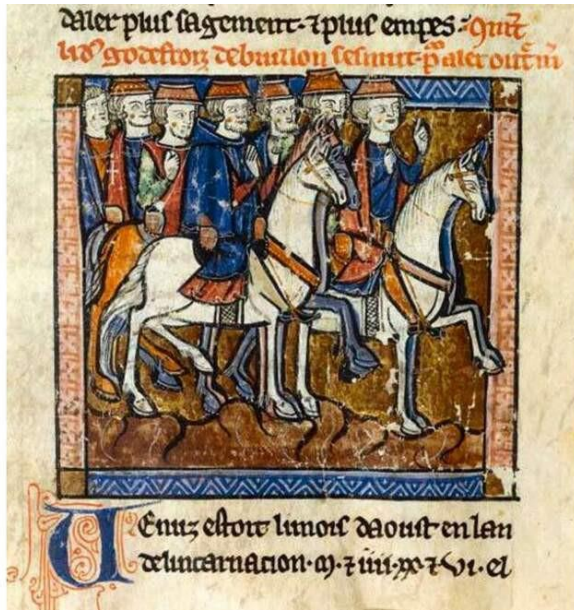 daler plus sagement · ⁊ plus empes · Qn̄t
li dꝰ godefroiz de buillon sesmut · pᵃ aler out̄ m̄
Uenuz estoit li mois daoust en lan
de lincarnacion · m · ⁊ iiii · xx ⁊ vi · el